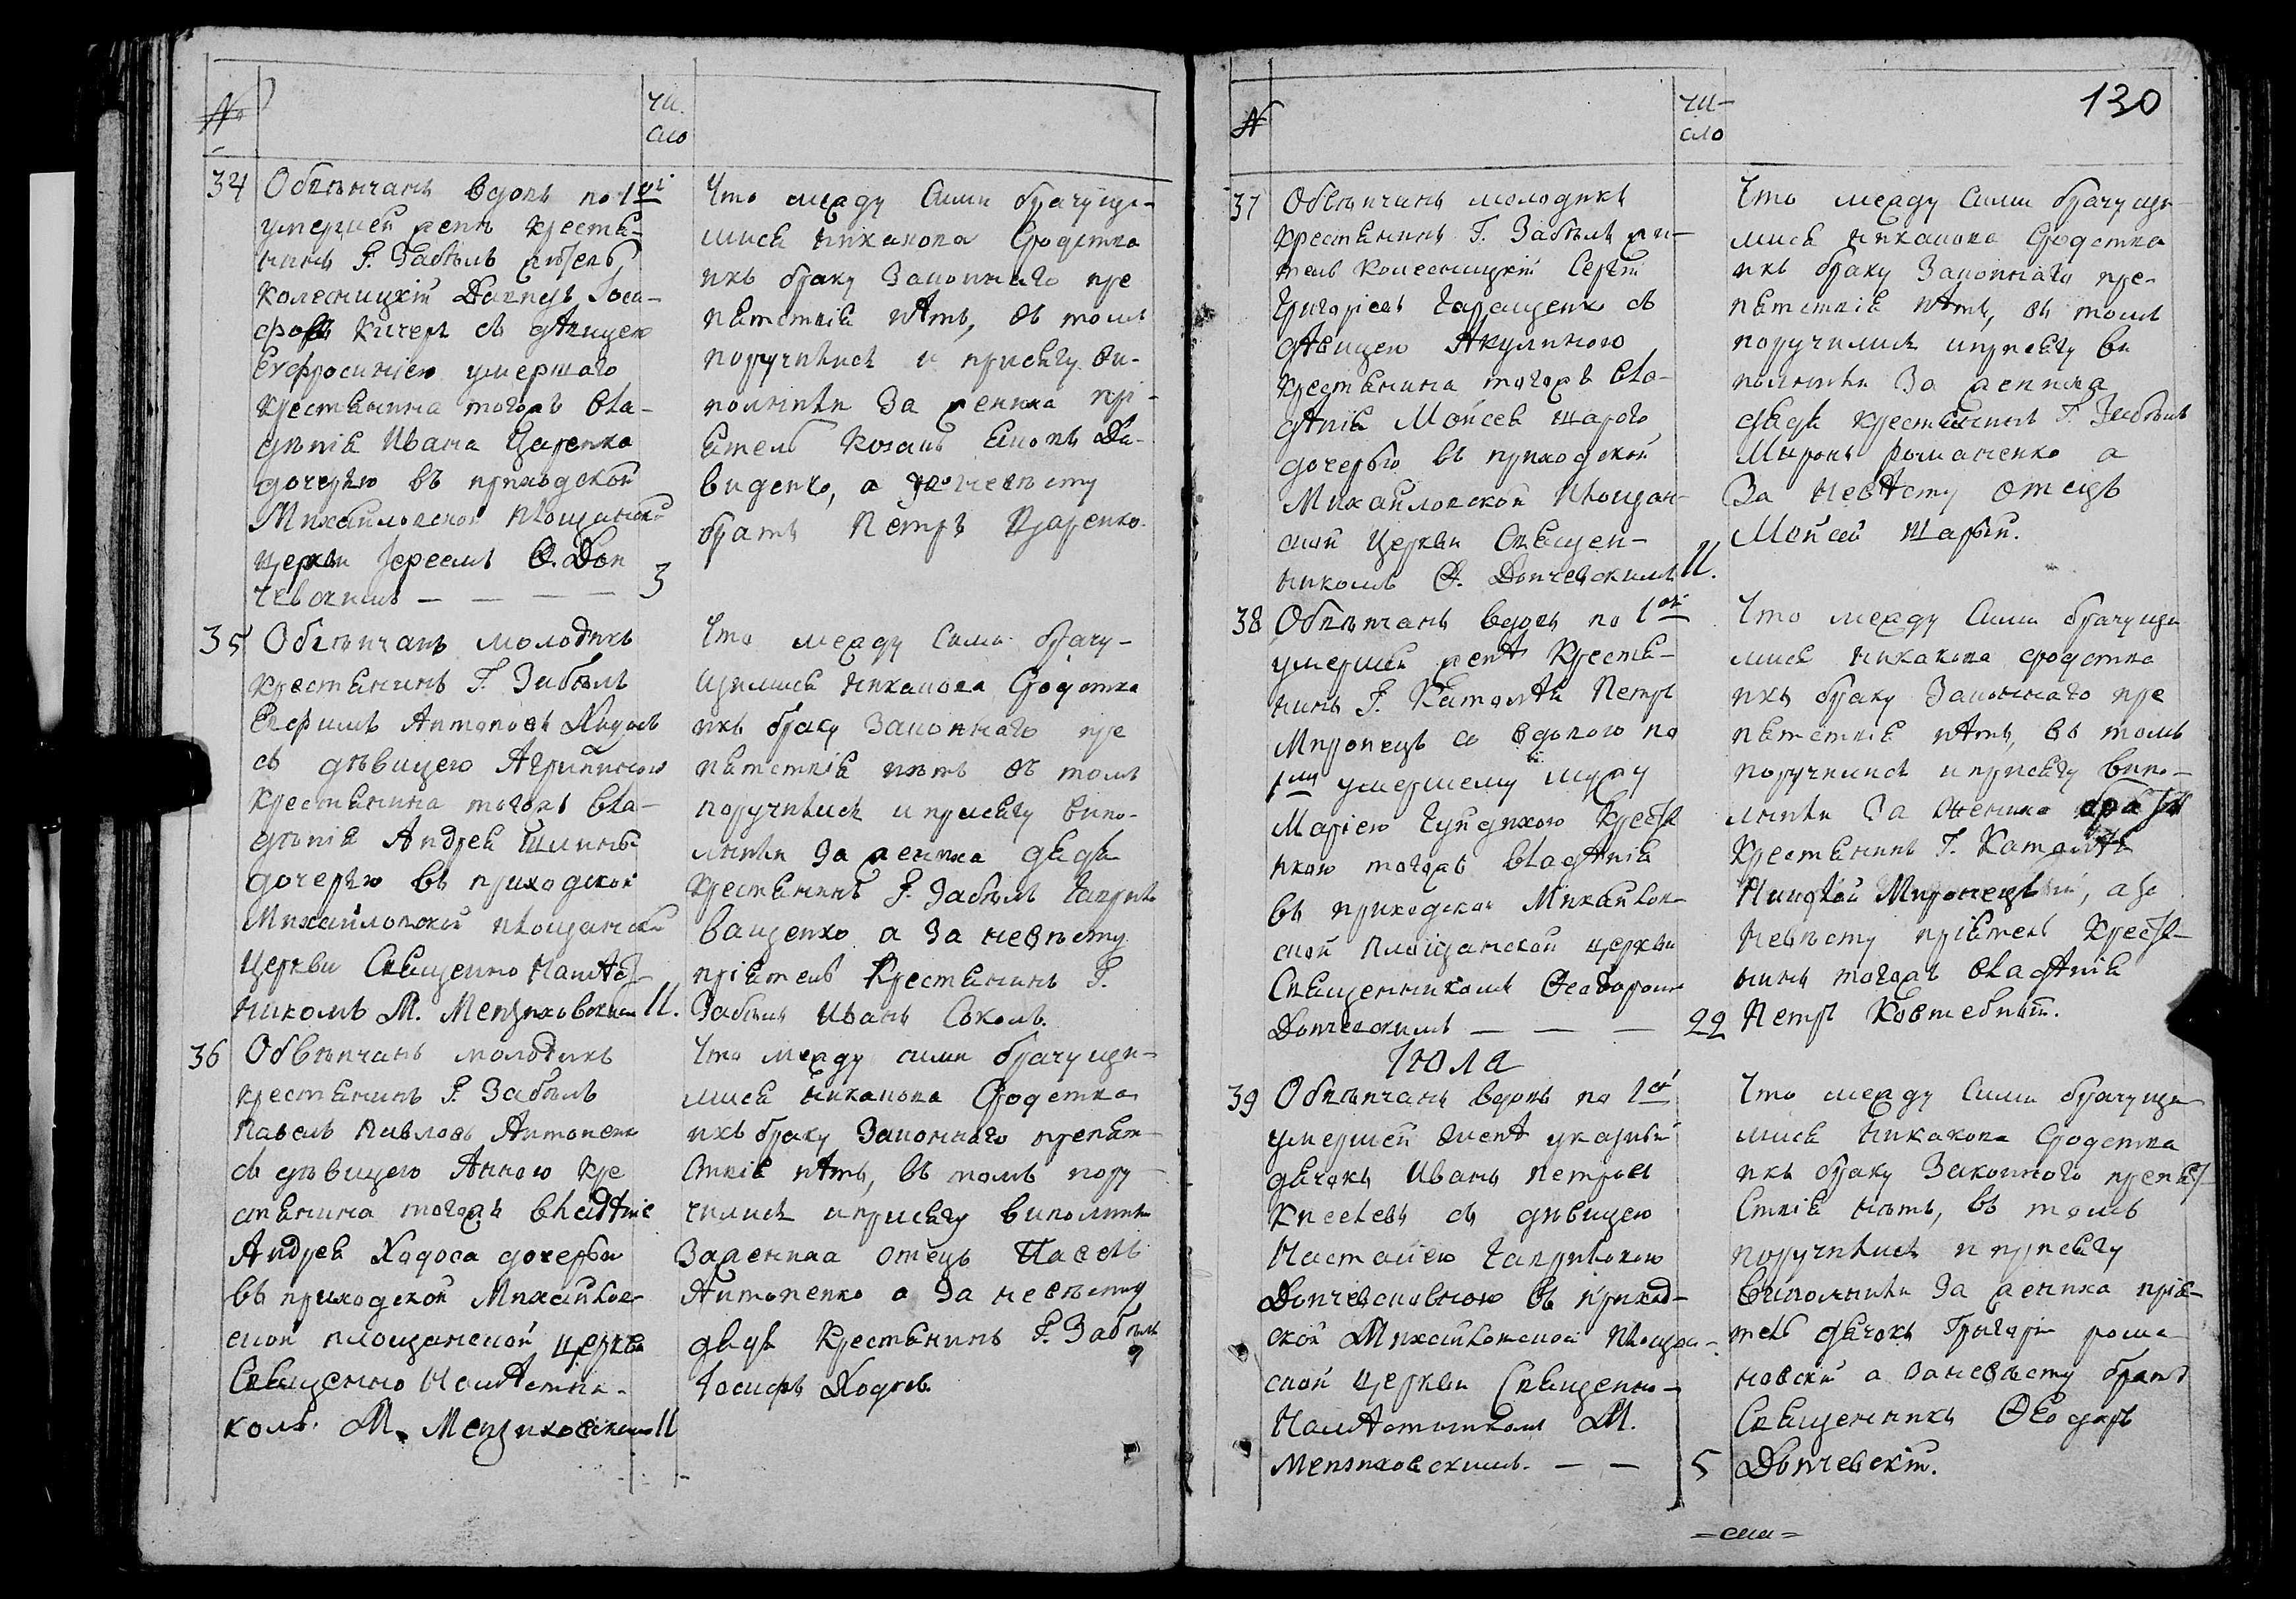 №
чи
сло
34
Обвѣнчанъ вдовъ по 1й
умершей женѣ крестья-
нинъ Г. Забѣлъ житель
Колесницкій Давидъ Іоси-
фовъ Кичеръ съ дѣвицею
Евфросиніею умершаго
крестьянина тогожъ вла-
дѣнія Ивана Царенка
дочерью въ приходской
Михайловской площанской
церкви Іереемъ Ѳ. Дон
чевскимъ — — — — 3
Что между сими брачущи-
мися никакова сродства
икъ браку законнаго пре
пятствія нѣтъ, въ томъ
поручились и присягу ви-
полнили за жениха прі-
ятель козакъ Да-
виденко, а за невѣсту
братъ Петръ Царенко.
35
Обвѣнчанъ молодикъ
крестьянинъ Г. Забѣлъ
Евфимъ Антоновъ Ходосъ
съ дѣвицею Агрипиною
крестьянина тогожъ вла-
дѣнія Андрея
дочерью въ приходской
Михайловской площанской
церкви Священно Намѣст-
никомъ М. Мензиховскимъ 11.
Что между сими брачу-
щимися никакова сродства
икъ браку законнаго пре
пятствія нѣтъ въ томъ
поручились и присягу випо-
лнили за жениха дядя
крестьянинъ Г. Забѣлъ Гаврило
Иващенко а за невѣсту
пріятель крестьянинъ Г.
Забѣлъ Иванъ Соколъ.
36
Обвѣнчанъ молодикъ
крестьянинъ Г. Забѣлъ
Павелъ Павловъ Антоненко
съ дѣвицею Анною кре
стьянина тогожъ владѣнія
Андрея Ходоса дочерью
въ приходской Михайлов-
ской площанской церкви
Священно Намѣстни-
комъ М. Мензиховскимъ 11
Что между сими брачущи-
мися никакова сродства
икъ браку законнаго препят-
ствія нѣтъ, въ томъ пору-
чились и присягу виполнили
за жениха отецъ Павелъ
Антоненко а за невѣсту
дядя крестьянинъ Г. Забѣлъ
Іосифъ Ходосъ.
130
№
чи-
сло
37
Обвѣнчанъ молодикъ
крестьянинъ Г. Забѣлъ жи-
тель Колесницкій Сергій
Григоріевъ Геращенко съ
дѣвицею Акулиною
крестьянина тогожъ вла-
дѣнія Мойсея Шарого
дочерью въ приходской
Михайловской площан-
ской церкви Священ-
никомъ Ѳ. Дончевскимъ 11.
Что между сими брачущи-
мися никакова сродства
икъ браку законнаго пре-
пятствія нѣтъ, въ томъ
поручились и присягу ви
полнили за жениха
дядя крестьянинъ Г. Забѣлъ
Миронъ Романенко а
за невѣсту отецъ
Мойсей Шарый.
38
Обвѣнчанъ вдовъ по 1ой
умершей женѣ крестья-
нинъ Г. Петръ
Миронецъ со вдовою по
1му умершему мужу
Маріею крестья
нкою тогожъ владѣнія
въ приходской Михайлов-
ской площанской церкви
Священникомъ Ѳеодоромъ
Дончевскимъ — — — 22
Что между сими брачущи
мися никакова сродства
икъ браку законнаго пре
пятствія нѣтъ, въ томъ
поручились и присягу випо-
лнили за жениха братъ
крестьянинъ Г.
Миронецъ, а за
невѣсту пріятель крестья-
нинъ тогожъ владѣнія
Петръ
Іюля
39
Обвѣнчанъ вдовъ по 1й
умершей женѣ указный
дячокъ Иванъ Петровъ
Киселевъ съ дѣвицею
Настасіею Гавриловою
Дончевсковною въ приход-
ской Михайловской площан-
ской церкви Священно-
Намѣстникомъ М.
Мензиховскимъ. — — 5
Что между сими брачущи
мися никакова сродства
икъ браку законного препят
ствія нѣтъ, въ томъ
поручились и присягу
виполнили за жениха прія-
тель дячокъ Григорій Рома
новскій а за невѣсту братъ
Священникъ Ѳеодоръ
Дончевскій.